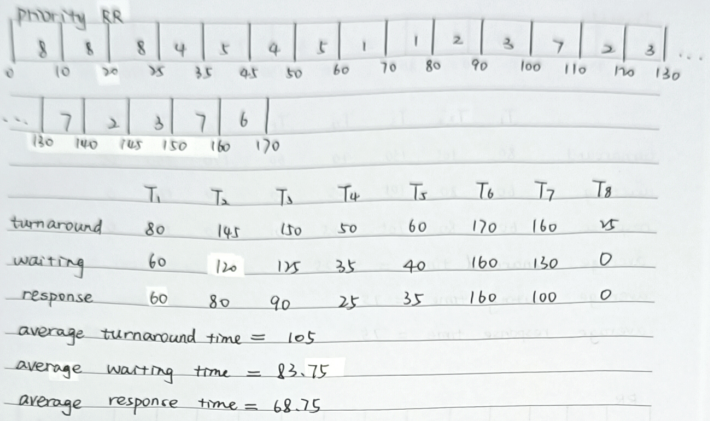 priority RR
8 8 8 4 5 4 5 1 1 2 3 7 2 3 ...
0 10 20 25 35 45 50 60 70 80 90 100 110 120 130
... 7 2 3 7 6
130 140 145 150 160 170
T1 T2 T3 T4 T5 T6 T7 T8
turnaround 80 145 150 50 60 170 160 25
waiting 60 120 125 35 40 160 130 0
response 60 80 90 25 35 160 100 0
average turnaround time = 105
average waiting time = 83.75
average responce time = 68.75